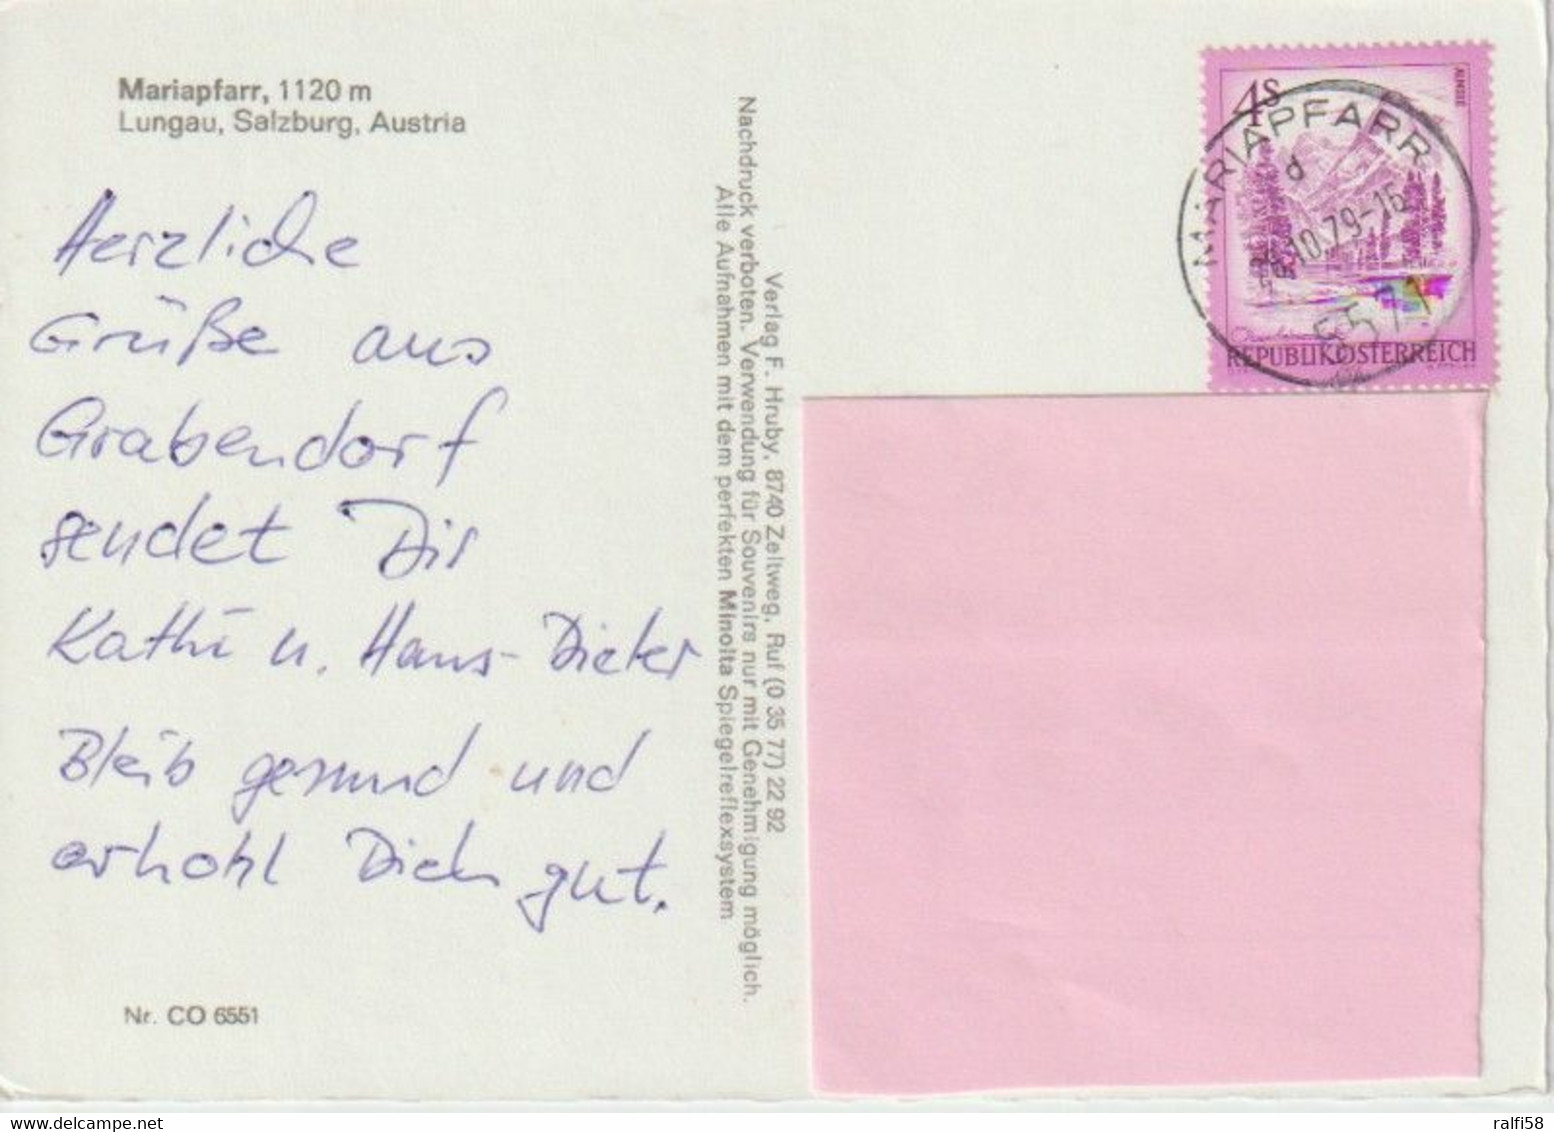 Mariapfarr, 1120 m
Lungau, Salzburg, Austria
Herzliche
Grüße aus
Grabendorf
sendet Dir
Kathi u. Hans-Dieter
Bleib gesund und
erhohl Dich gut.
Nr. CO 6551
Verlag F. Hruby, 8740 Zeltweg, Ruf (0 35 77) 22 92
Nachdruck verboten. Verwendung für Souvenirs nur mit Genehmigung möglich.
Alle Aufnahmen mit dem perfekten Minolta Spiegelreflexsystem
4S
ALMSEE
REPUBLIK ÖSTERREICH
MARIAPFARR
d
.10.79-16
5571
ralfi58